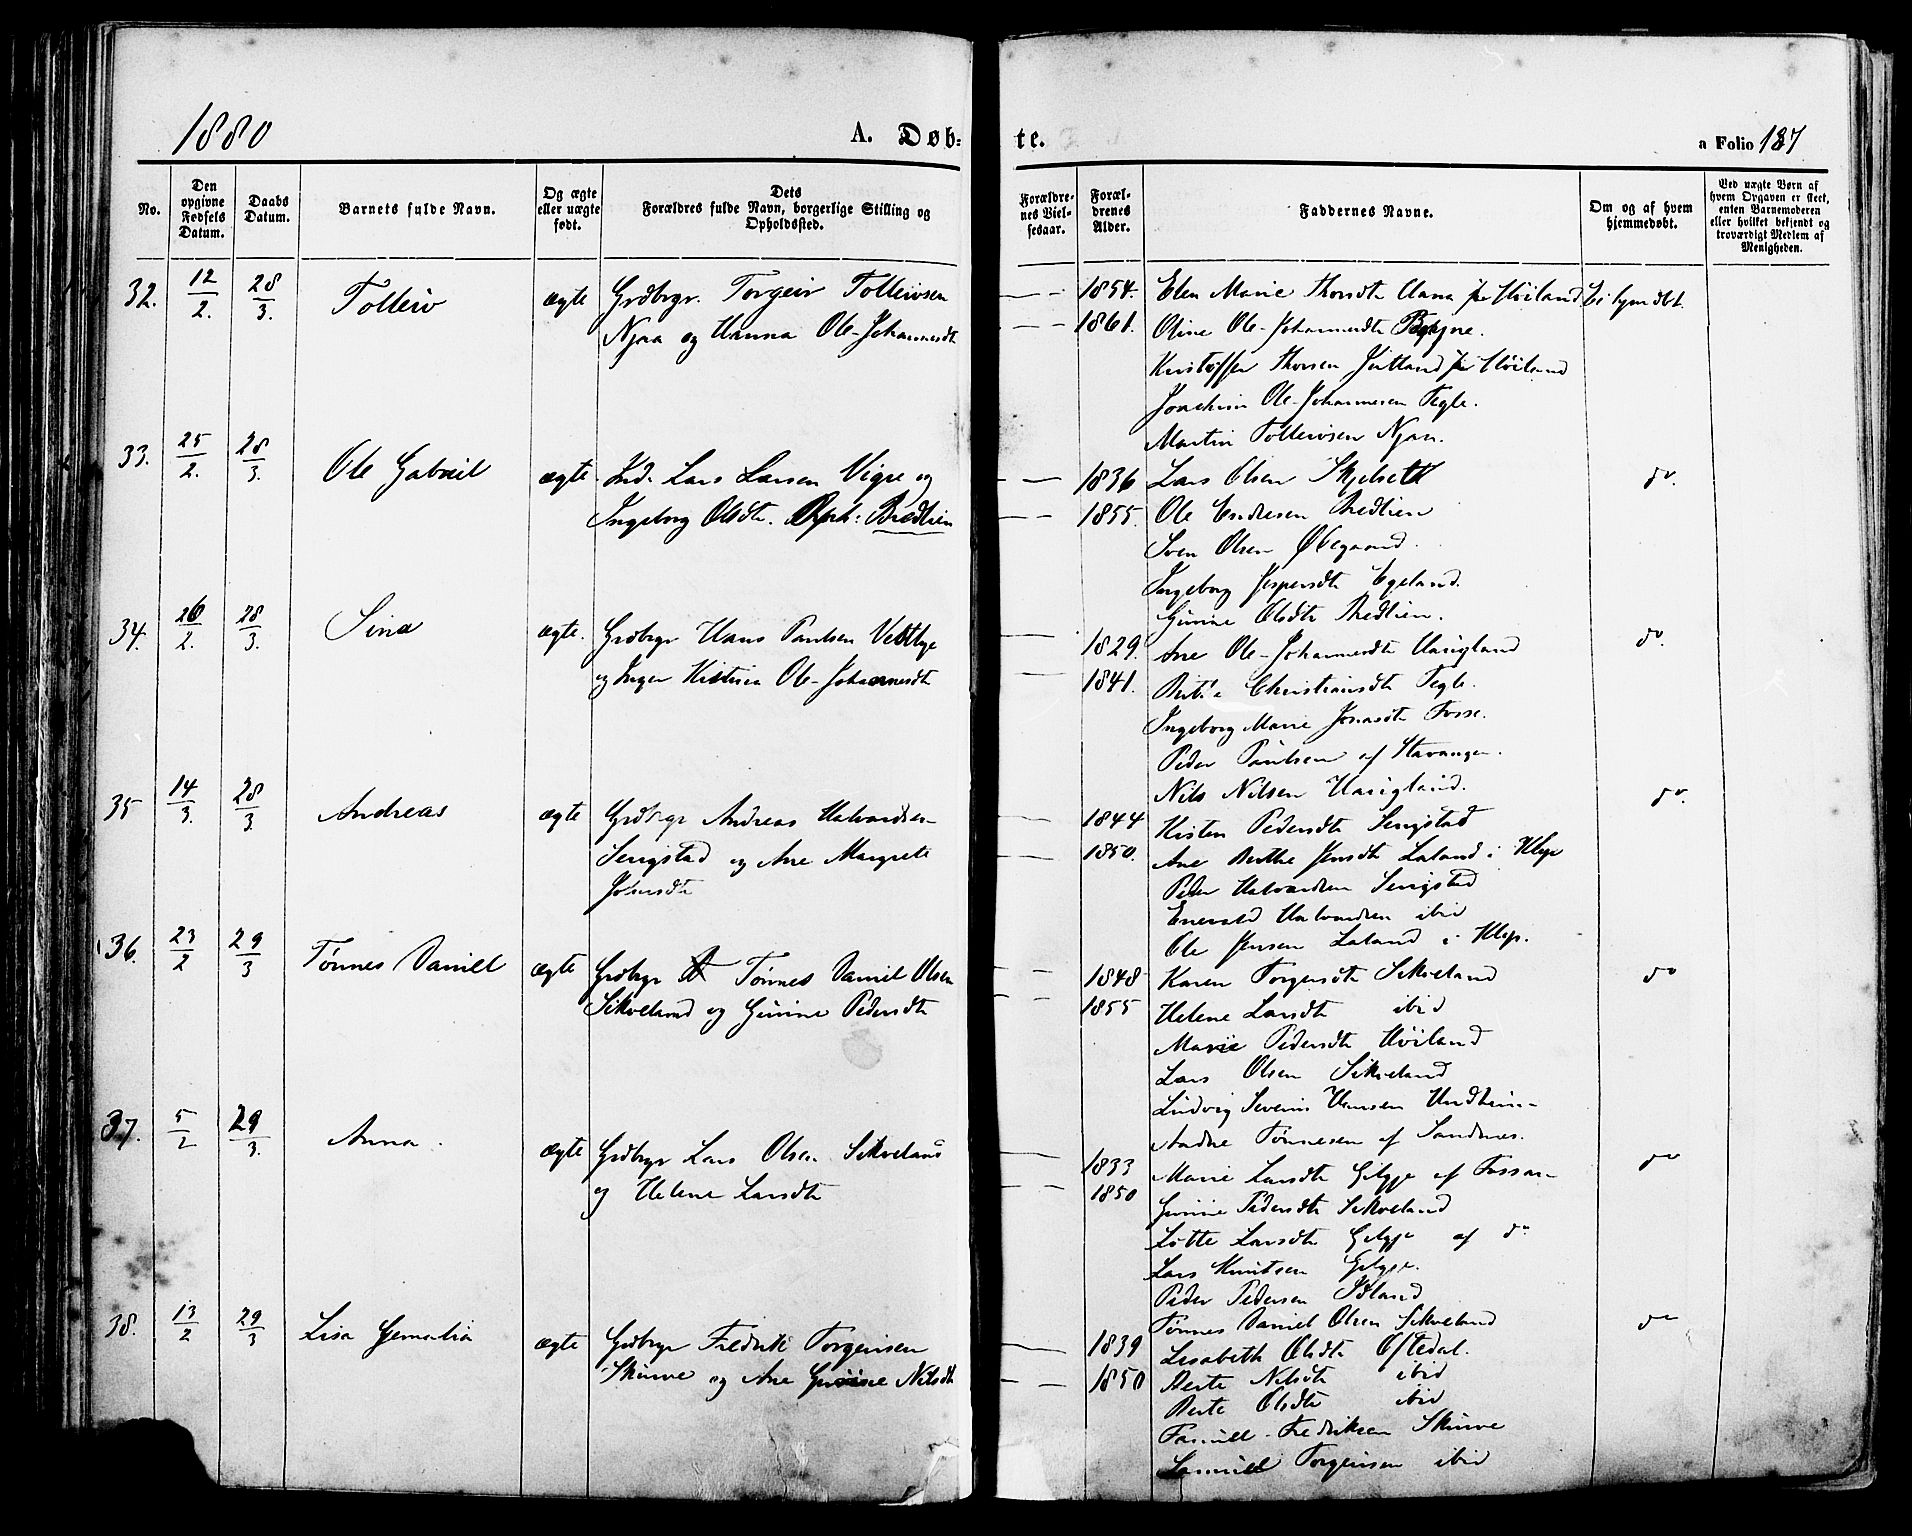 1880
A. Døb-
te.
a Folio 187
No.
Den opgivne Fødsels Datum.
Daabs Datum.
Barnets fulde Navn.
Og ægte eller uægte født.
Dets Forældres fulde Navn, borgerlige Stilling og Opholdssted.
Forældrenes Vielsesaar.
Forældrenes Alder.
Faddernes Navne.
Om og af hvem hjemmedøbt.
Ved uægte Børn af hvem Opgaven er skeet, enten Barnemoderen eller hvilket bekjendt og troværdigt Medlem af Menigheden.
32. 12/2. 28/3. Tolleiv ægte Grdbrgr. Torgeir Tolleivsen
Njaa og Hanna Ole-Johannesdt
1854. Elen Marie Thorsdt Hana Høiland Ei hjmdbt.
1861. Oline Ole-Johannesdt
Kristoffer Thorsen Høiland
Joachim Ole-Johannesen Tegle.
Martin Tolleivsen Njaa.
33. 25/2. 28/3. Ole Gabriel ægte Ind. Lars Larsen Vigre og
Ingeborg Olsdt. Oph: Bredlien
1836 Lars Olsen Skjelset do.
1855. Ole Endresen Bredlien
Sven Olsen Ødegaard.
Ingeborg Jespersdt Egeland.
Gunne Olsdt Bredlien.
34. 26/2. 28/3. Sina ægte. Grdbrgr Hans Paulsen Vestlye
og Inger Kistine Ole-Johannesdt
1829. Ane Ole-Johannesdt Haugland do.
1841. Berta Christiansdt Tegle.
Ingeborg Marie Jonasdt Fosse.
Peder Paulsen af Stavanger.
Nils Nilsen Haugland.
35 14/3. 28/3. Andreas ægte Grdbrgr Andreas Halvardsen
Serigstad og Ane Margrete
Jonasdt
1844 Kisten Pedersdt Serigstad do.
1850. Ane Berthe Jensdt Laland i Klep
Peder Halvardsen Serigstad
Enevald Halvardsen ibid
Ole Jensen Laland i Klep.
36. 23/2 29/3 Tønnes Daniel ægte Grdbrgr Tønnes Daniel Olsen
Sikveland og Gunne Pedersdt
1848 Karen Torgersdt Sikveland do
1855 Helene Larsdt ibid
Marie Pedersdt Høiland
Lars Olsen Sikveland
Ludvig Severin Hansen Undheim
Andre Tønnesen af Sandnæs.
37. 5/2 29/3. Anna. ægte Grdbrgr Lars Olsen Sikveland
og Helene Larsdt
1833 Marie Larsdt Gilgje af Fossan do
1850 Gunne Pedersdt Sikveland
Lotte Larsdt Gilgje af do
Lars Knutsen Gilgje.
Peder Pedersen
Tønnes Daniel Olsen Sikveland
38. 13/2 29/3 Lisa Gemalia ægte Grdbrgr Fredrik Torgersen
Skurve og Ane Gurine Nilsdt
1839 Lisabeth Olsdt Oftedal. do
1850 Berte Nilsdt ibid
Berte Olsdt ibid
Samuel Fredriksen Skurve
Samuel Torgersen ibid